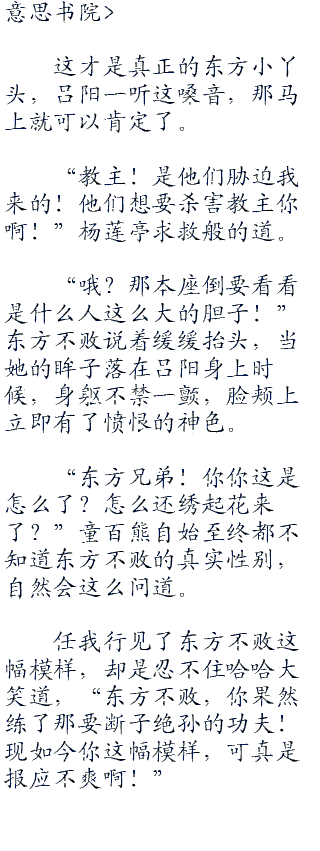 意思书院>
这才是真正的东方小丫
头，吕阳一听这嗓音，那马
上就可以肯定了。
“教主！是他们胁迫我
来的！他们想要杀害教主你
啊！”杨莲亭求救般的道。
“哦？那本座倒要看看
是什么人这么大的胆子！”
东方不败说着缓缓抬头，当
她的眸子落在吕阳身上时
候，身躯不禁一颤，脸颊上
立即有了愤恨的神色。
“东方兄弟！你你这是
怎么了？怎么还绣起花来
了？”童百熊自始至终都不
知道东方不败的真实性别，
自然会这么问道。
任我行见了东方不败这
幅模样，却是忍不住哈哈大
笑道，“东方不败，你果然
练了那要断子绝孙的功夫！
现如今你这幅模样，可真是
报应不爽啊！”